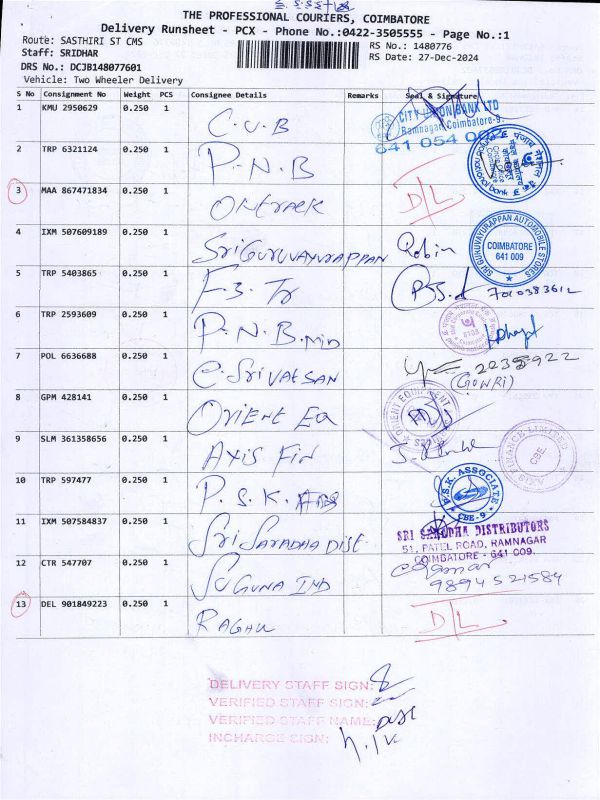 THE PROFESSIONAL COURIERS, COIMBATORE
Delivery Runsheet - PCX - Phone No.:0422-3505555 - Page No.:1
Route: SASTHIRI ST CMS
RS No.: 1480776
Staff: SRIDHAR
RS Date: 27-Dec-2024
DRS No.: DCJB148077601
Vehicle: Two Wheeler Delivery
S No Consignment No Weight PCS Consignee Details Remarks Seal & Signature
1 KMU 2950629 0.250 1 C.U.B
CITY UNION BANK LTD
Ramnagar, Coimbatore-9.
641 054 002
2 TRP 6321124 0.250 1 P.N.B
3 MAA 867471834 0.250 1 ONTRACK D/L
4 IXM 507609189 0.250 1 SRIGURUVAYURAPPAN Robin
SRI GURUVAYURAPPAN AUTOMOBILE STORES
COIMBATORE
641 009
5 TRP 5403865 0.250 1 F3. Tr
7010383612
6 TRP 2593609 0.250 1 P.N.B.Min
7 POL 6636688 0.250 1 C.SRIVATSAN 2235922
(GOWRI)
8 GPM 428141 0.250 1 ORIENT EQ
ORIENT EQUIPMENT
9 SLM 361358656 0.250 1 AXIS FIN
AXIS FINANCE LIMITED
CBE
10 TRP 597477 0.250 1 P.S.K. Ass
P.S.K. ASSOCIATE
CBE-9
11 IXM 507584837 0.250 1 SRI SARADHA DIST
SRI SARADHA DISTRIBUTORS
51, PATEL ROAD, RAMNAGAR
COIMBATORE - 641 009.
12 CTR 547707 0.250 1 SUGUNA IND
9894521584
13 DEL 901849223 0.250 1 RAGHU D/L
DELIVERY STAFF SIGN:
VERIFIED STAFF SIGN:
VERIFIED STAFF NAME:
INCHARGE SIGN: